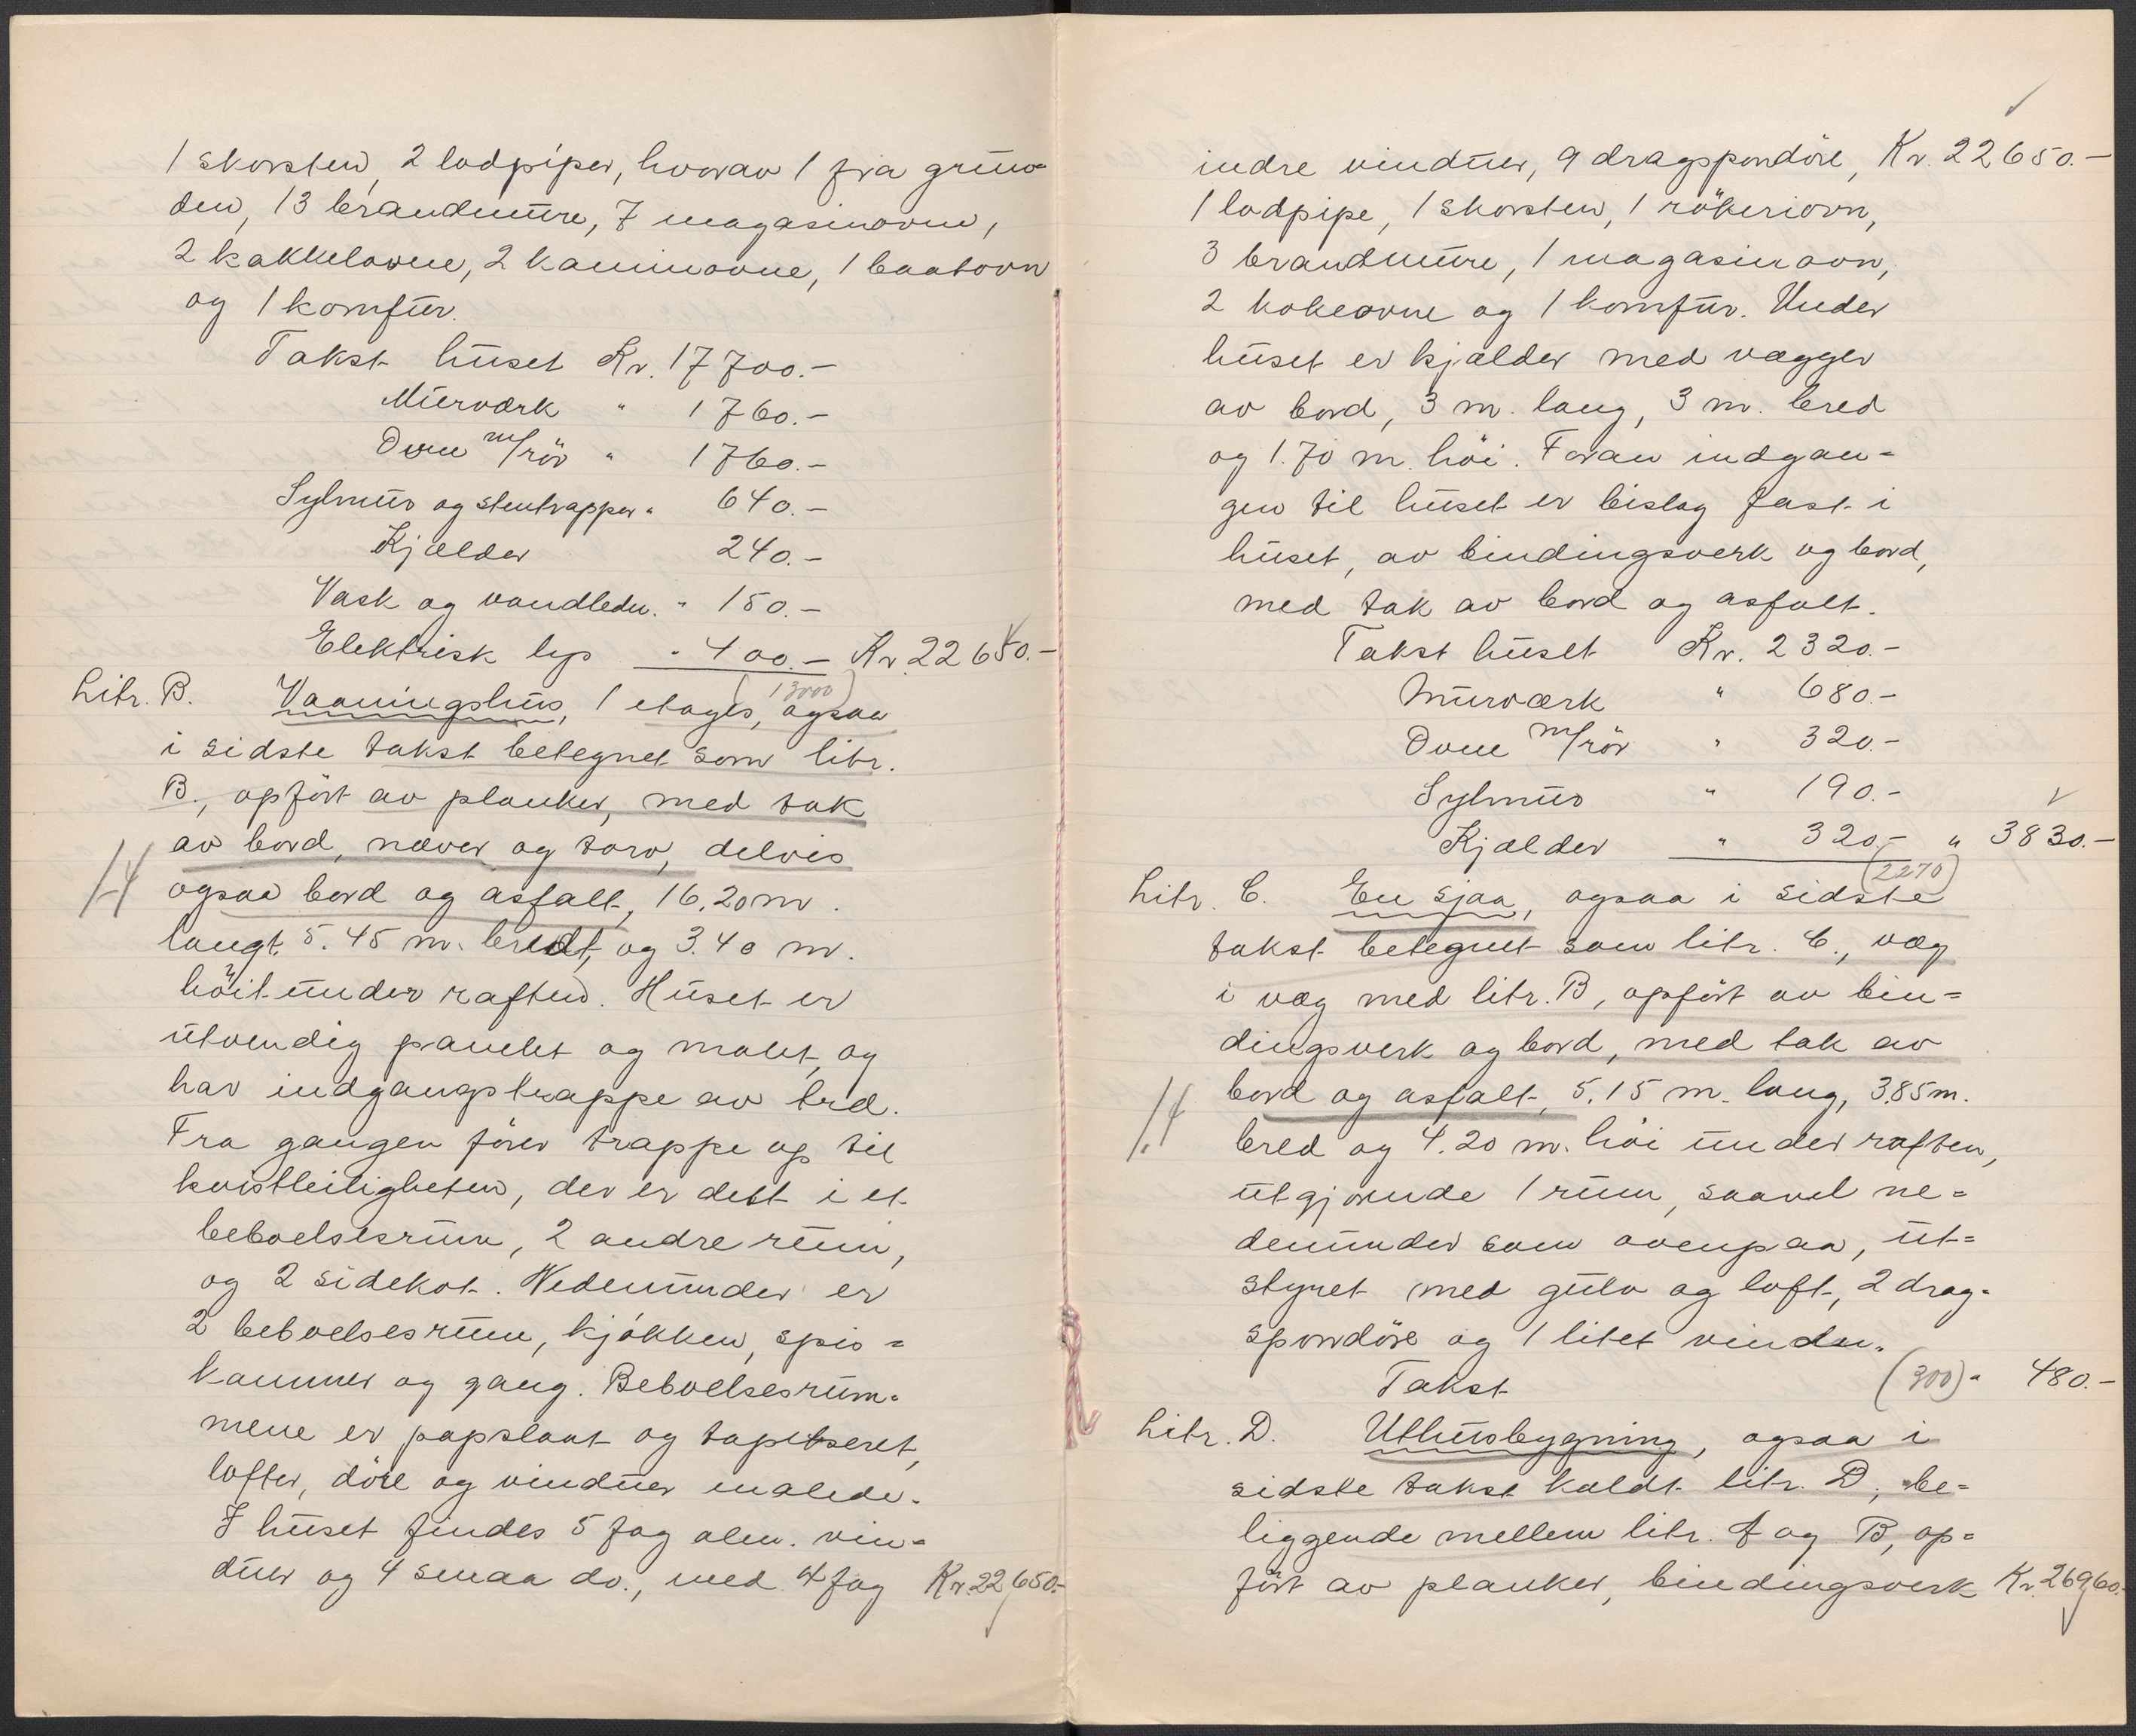 1 skorsten, 2 lodpiper, hvorav 1 fra grun-
den, 13 brandmure, 7 magasinovne,
2 kakkelovne, 2 kaminovne, 1 baatovn
og 1 komfur.
Takst huset Kr. 17700.-
Murværk " 1760.-
Ovne m/rör " 1760.-
Sylmur og stentrapper " 640.-
Kjælder 240.-
Vask og vandledn. " 150.-
Elektrisk lys " 400.- Kr. 22650.-
(13000)
Litr. B. Vaaningshus, 1 etages, ogsaa
i sidste takst betegnet som litr.
B., opfört av planker, med tak
av bord, næver og torv, delvis
1/4 ogsaa bord og asfalt, 16.20 m.
langt, 5.45 m. bredt, og 3.40 m.
höit under raften. Huset er
utvendig panelet og malet, og
har indgangstrappe av brd.
Fra gangen förer trappe op til
kvistleiligheten, der er delt i et
beboelsesrum, 2 andre rum,
og 2 sidekot. Nedenunder er
2 beboelsesrum, kjökken, spis=
kammer og gang. Beboelsesrum-
mene er papslaat og tapetseret,
lofter, döre og vinduer malede.
I huset findes 5 fag alm. vin-
duer og 4 smaa do., med 4 fag Kr. 22650.-
indre vinduer, 9 dragspondöre, Kr. 22650.-
1 lodpipe, 1 skorsten, 1 rökeriovn,
3 brandmure, 1 magasinovn,
2 kokeovne og 1 komfur. Under
huset er kjælder med vægger
av bord, 3 m. lang, 3 m. bred
og 1.70 m. höi. Foran indgan-
gen til huset er bislag fast i
huset, av bindingsverk og bord,
med tak av bord og asfalt.
Takst huset Kr. 2320.-
Murværk " 680.-
Ovne m/rör " 320.-
Sylmur " 190.-
Kjælder " 320.- " 3830.-
(2270)
Litr. C. En sjaa, ogsaa i sidste
takst betegnet som litr. C., væg
i væg med litr. B, opfört av bin=
dingsverk og bord, med tak av
1/4 bord og asfalt, 5.15 m. lang, 3.85 m.
bred og 4.20 m. höi under raften,
utgjörende 1 rum, saavel ne=
denunder som ovenpaa, ut=
styret med gulv og loft, 2 drag-
spondöre og 1 litet vindu.
Takst (300) " 480.-
Litr. D. Uthusbygning, ogsaa i
sidste takst kaldt litr. D, be=
liggende mellem litr. A og B, op=
fört av planker, bindingsverk Kr. 26960.-